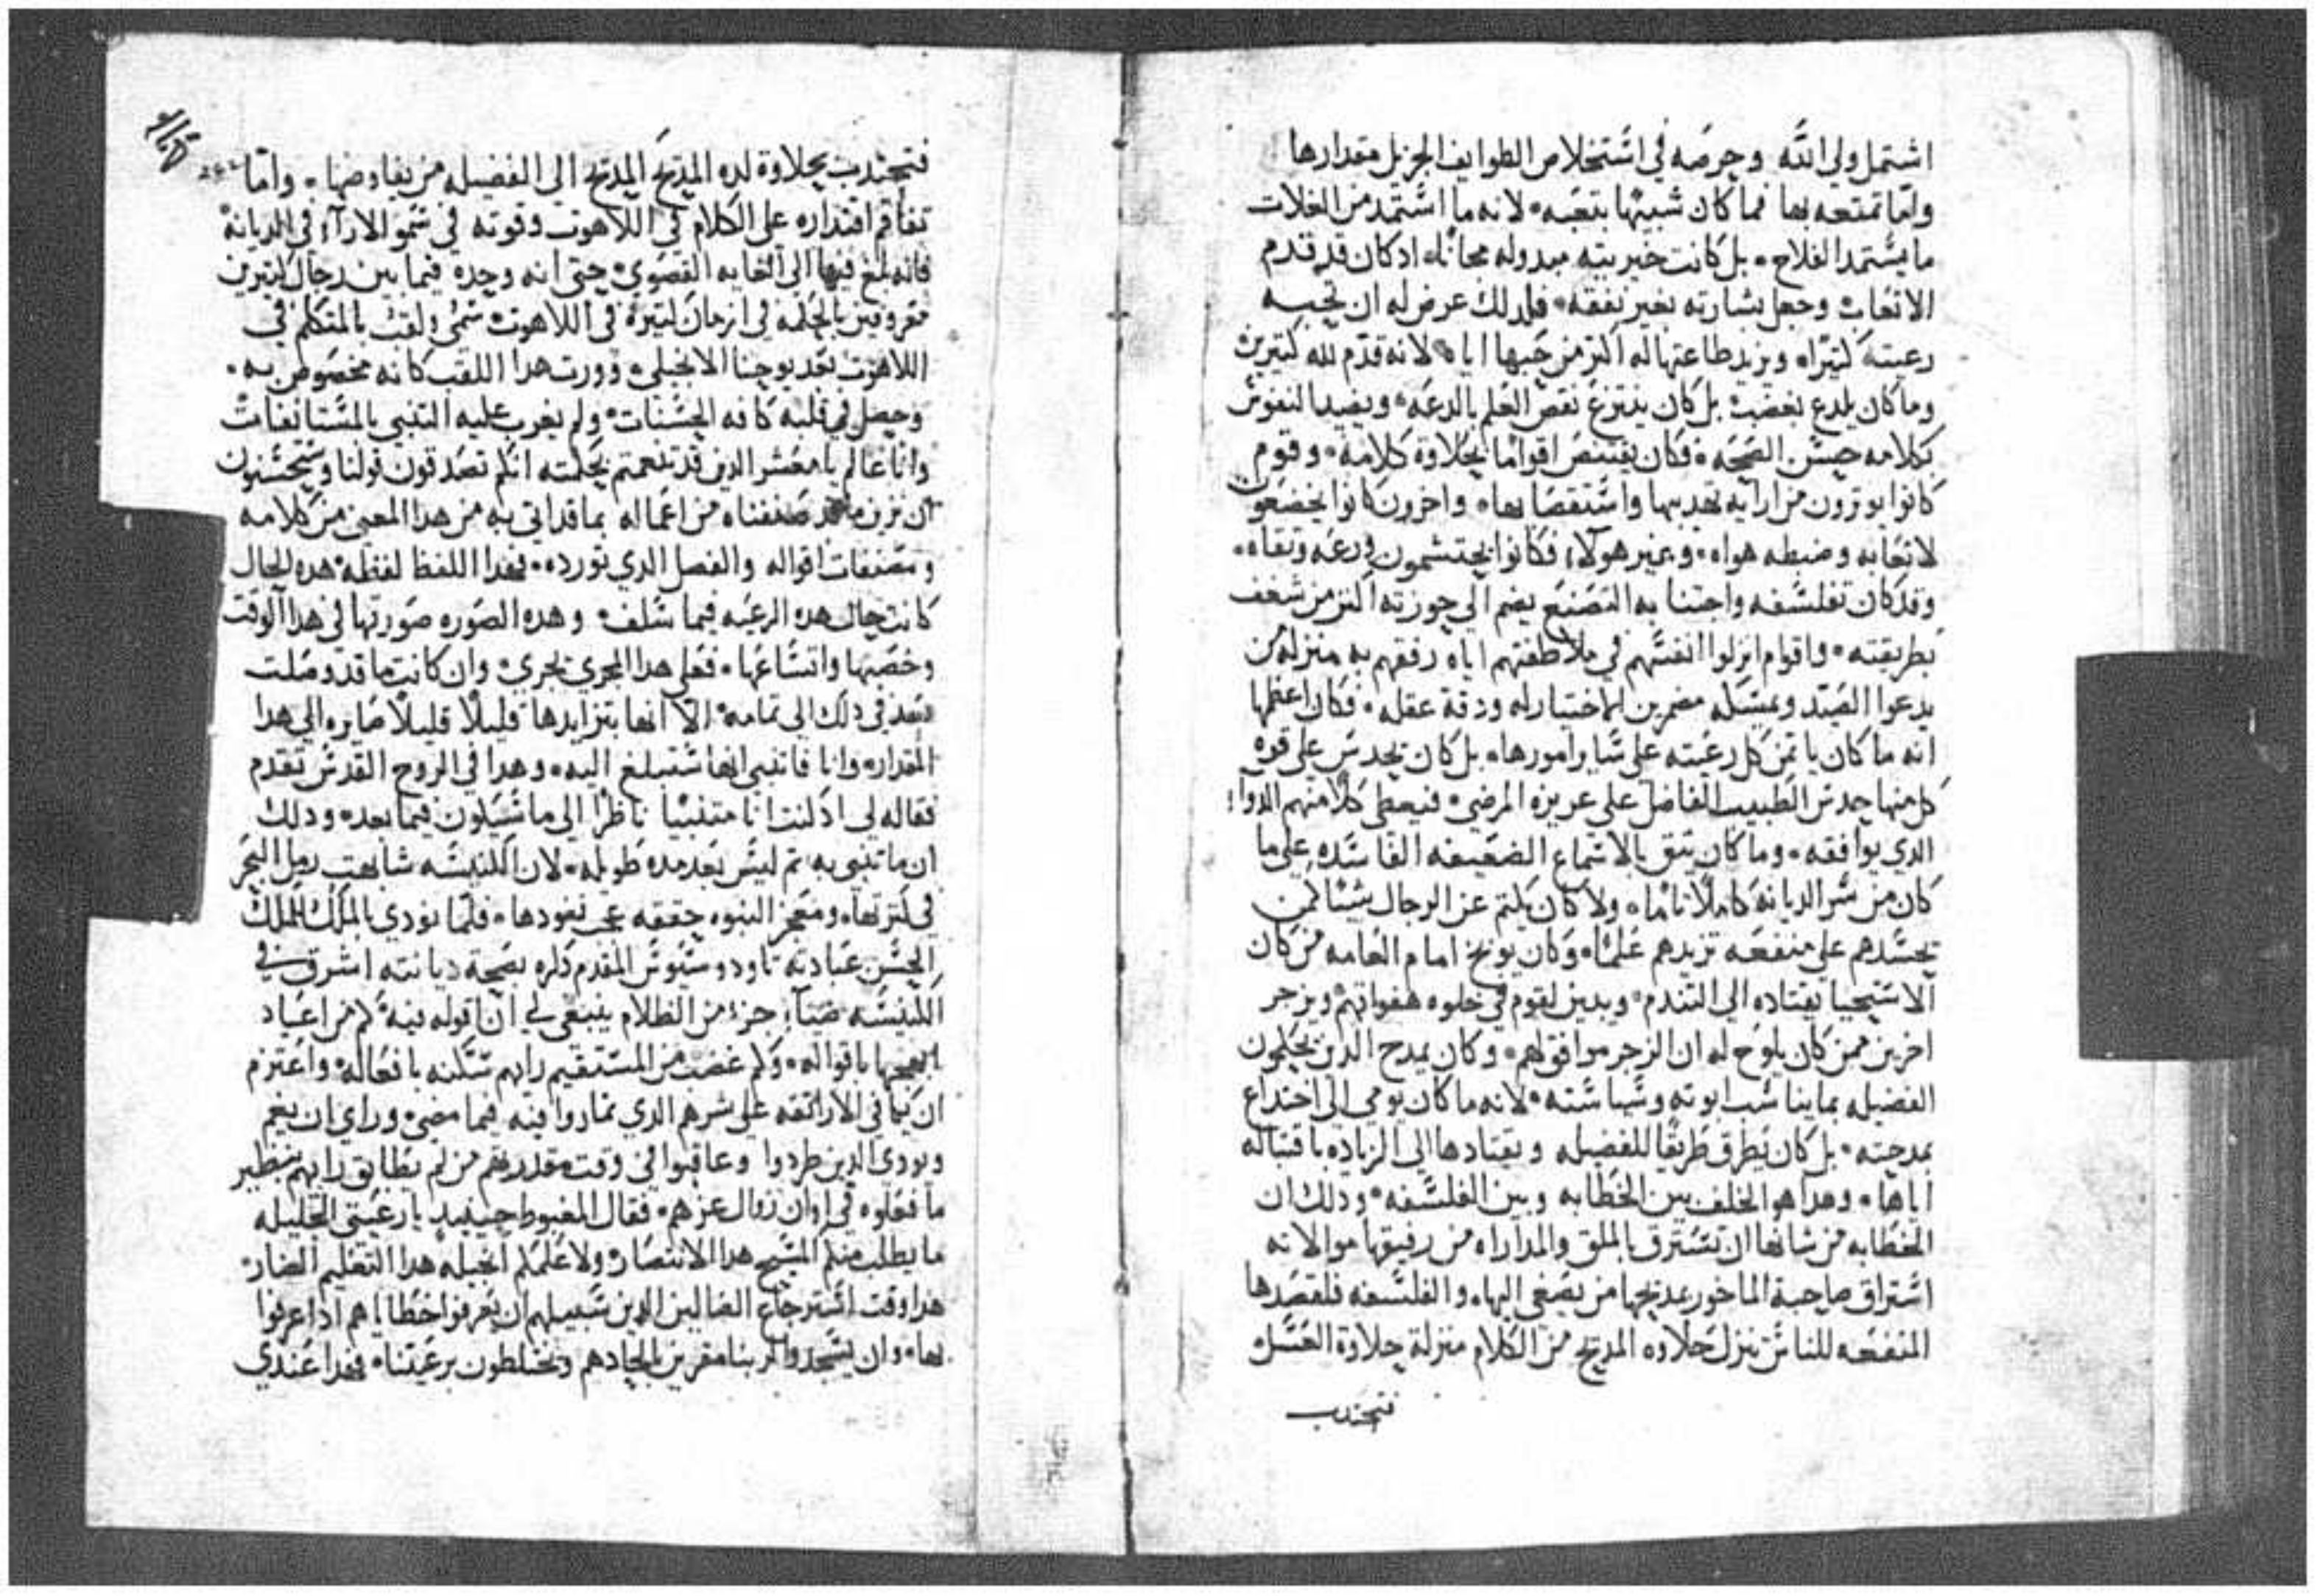 اشتمل ولي الله وحرصه في اشتخلاص الطوايف الجزيل مقدارها
واما تمتعه بها فما كان شبيها بتعبه لانه ما اشتمد من الغلات
ما يشتمد الفلاح بل كانت خيريته مبدوله مجانا ادكان قد قدم
الاتعاب وجعل بشارته بغير نفقه فلدلك عرض له ان تحبه
رعيته كتيرا ويزيد طاعتها له اكتر من حبها اياه لانه قدم لله كتيرين
وما كان يلدع بغضب بل كان ينتزع نقص العلم بالدعه ويفيد النفوش
بكلامه حسن الصحه فكان يقتنص اقواما بحلاوة كلامه وقوم
كانوا يوترون من ارايه تهديبها واشتقصابها واخرون كانوا يخضعون
لاتعابه وضبطه هواه وغير هولاء فكانوا يحتشمون ورعه وتقاه
وقد كان تفلشفه واجتنابه التصنع يضم الي حوزته اكتر من شغف
بطريقته واقوام انزلوا انفشهم في ملاطفتهم اياه رفقهم به منزلة من
يدعوا الصيد ويمشكه مضمرين لاختباره ودقة عقله فكان اعظمها
انه ما كان ياتمن كل رعيته علي شاير امورها بل كان يحدش علي قوه
كل منها حدش الطبيب الفاضل علي غريزة المرضي فيعطي كلا منهم الدوآء
الدي يوافقه وما كان يتق بالاشماع الضعيفه الفاشده علي ما
كان من شر الديانه كاملا تاما ولا كان يكتم عن الرجال شيا كمن
يحشدهم علي منفعه تزيدهم علما وكان يوبخ امام العامه من كان
الاشتحيا يقتاده الي التندم ويدين لقوم في خلوه هفواتهم ويزجر
اخرين ممن كان يلوح له ان الزجر موافق لهم وكان يمدح الدين يحكمون
الفضيله بما يناشب ابوته وشياشته لانه ما كان يومي الي اختداع
بمدحته بل كان يطرق طريقا للفضيله ويقتادها الي الزياده باقتباله
اياها وهدا هو الخلف بين الخطابه وبين الفلشفه ودلك ان
الخطابه من شانها ان تشترق بالملق والمداراه من رفيقها موالاته
اشتراق صاحبة الماخور بمديحها من يصغي اليها والفلشفه فلقصدها
المنفعه للناش تنزل حلاوه المديح من الكلام منزلة حلاوة العشل
فتجتدب
فتجتدب بحلاوة لده المديح المديح الي الفضيله من يفاوضها واما
تفاقم اقتداره علي الكلام في اللاهوت وقوته في شمو الاراء في الديانه
فانه بلغ فيها الي الغايه القصوي حتي انه وحده فيما بين رجال كتيرين
معروفين بالحكمه في ازمان كتيره في اللاهوت شمي ولقب بالمتكلم في
اللاهوت بعد يوحنا الانجيلي وورت هدا اللقب كانه مخصوص به
وحصل في قلبه كافه الحشنات ولم يغرب عليه التنبي بالمشتانفات
وانا عالم يا معشر الدين قد تنعمتم بحكمته انكم تصدقون قولنا وشتحشنون
ان نزين ما قد صنفناه من اعماله بما قد اتي به من هدا المعني من كلامه
ومصنفات اقواله والفصل الدي نورده فهدا اللفظ لفظه هده الحال
كانت حال هده الرعيه فيما شلف وهده الصوره صورتها في هدا الوقت
وخصبها واتشاعها فعلي هدا المجري تجري وان كانت ما قد وصلت
بعد في دلك الي تمامه الا انها بتزايدها قليلا قليلا صايره الي هدا
المقدار وانا فاتنبي انها شتبلغ اليه وهدا في الروح القدش تقدم
فقاله لي اد كنت انا متنبيا ناظرا الي ما شيكون فيما بعد ودلك
ان ما تنبي به تم ليش بعد مده طويله لان الكنيشه شابهت رمل البحر
في كترتها ومعجز النبوه حققه عجب نفودها فلما نودي بالملك للملك
الحشن عبادته تاودوشيوش المقدم دكره بصحة ديانته اشرق في
الكنيشه ضيآء جزء من الظلام ينبغي لي ان اقوله فيه كم من اعياد
ابهجها باقواله وكم غضب من المشتقيم رايهم شكنه بافعاله واعتزم
ان يكافي الاراتقه علي شرهم الدي تمادوا فيه فيما مضي وراي ان يغم
ويودي الدين طردوا وعاقبوا في وقت مقدرتهم من لم يطابق رايهم بنظير
ما فعلوه في اوان زوال عزهم فقال المغبوط حينيد يا رعيتي الجليله
ما يطلب منكم المشيح هدا الانتصار ولا علمكم انجيله هدا التعليم الضار
هدا وقت اشترجاع الضالين الدين شبيلهم ان يعرفوا خطاياهم ادا عرفوا
بها وان يشجدوا لربنا مقرين بالحادهم ويختلطون برعيتنا فهدا عندي